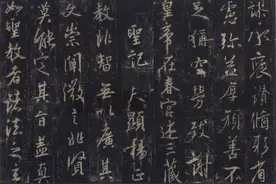 謬承褒讚循躬省
慮彌益厚顏善不
足稱空勞致謝
皇帝在春宮述三藏
聖記 夫顯揚正
教非智無以廣其
文崇闡微言非賢
莫能定其旨蓋真
如聖教者諸法之玄